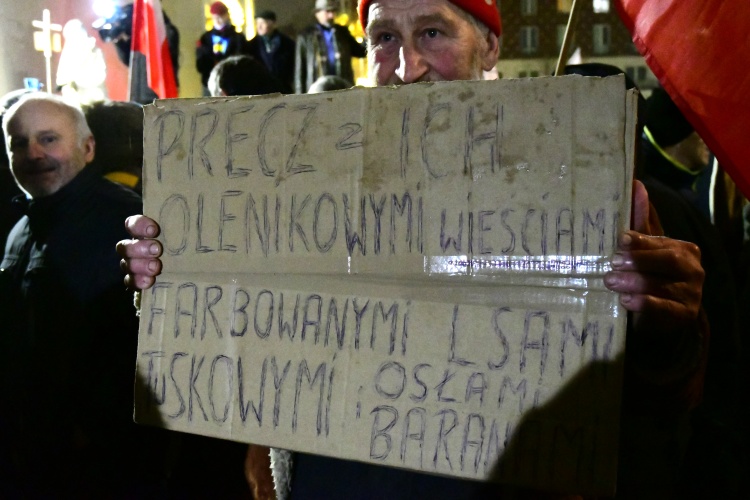 PRECZ z ICH
OLENIKOWYMI WIEŚCIAMI
FARBOWANYMI LSAMI
TUSKOWYMI i OSŁAMI
BARANAMI